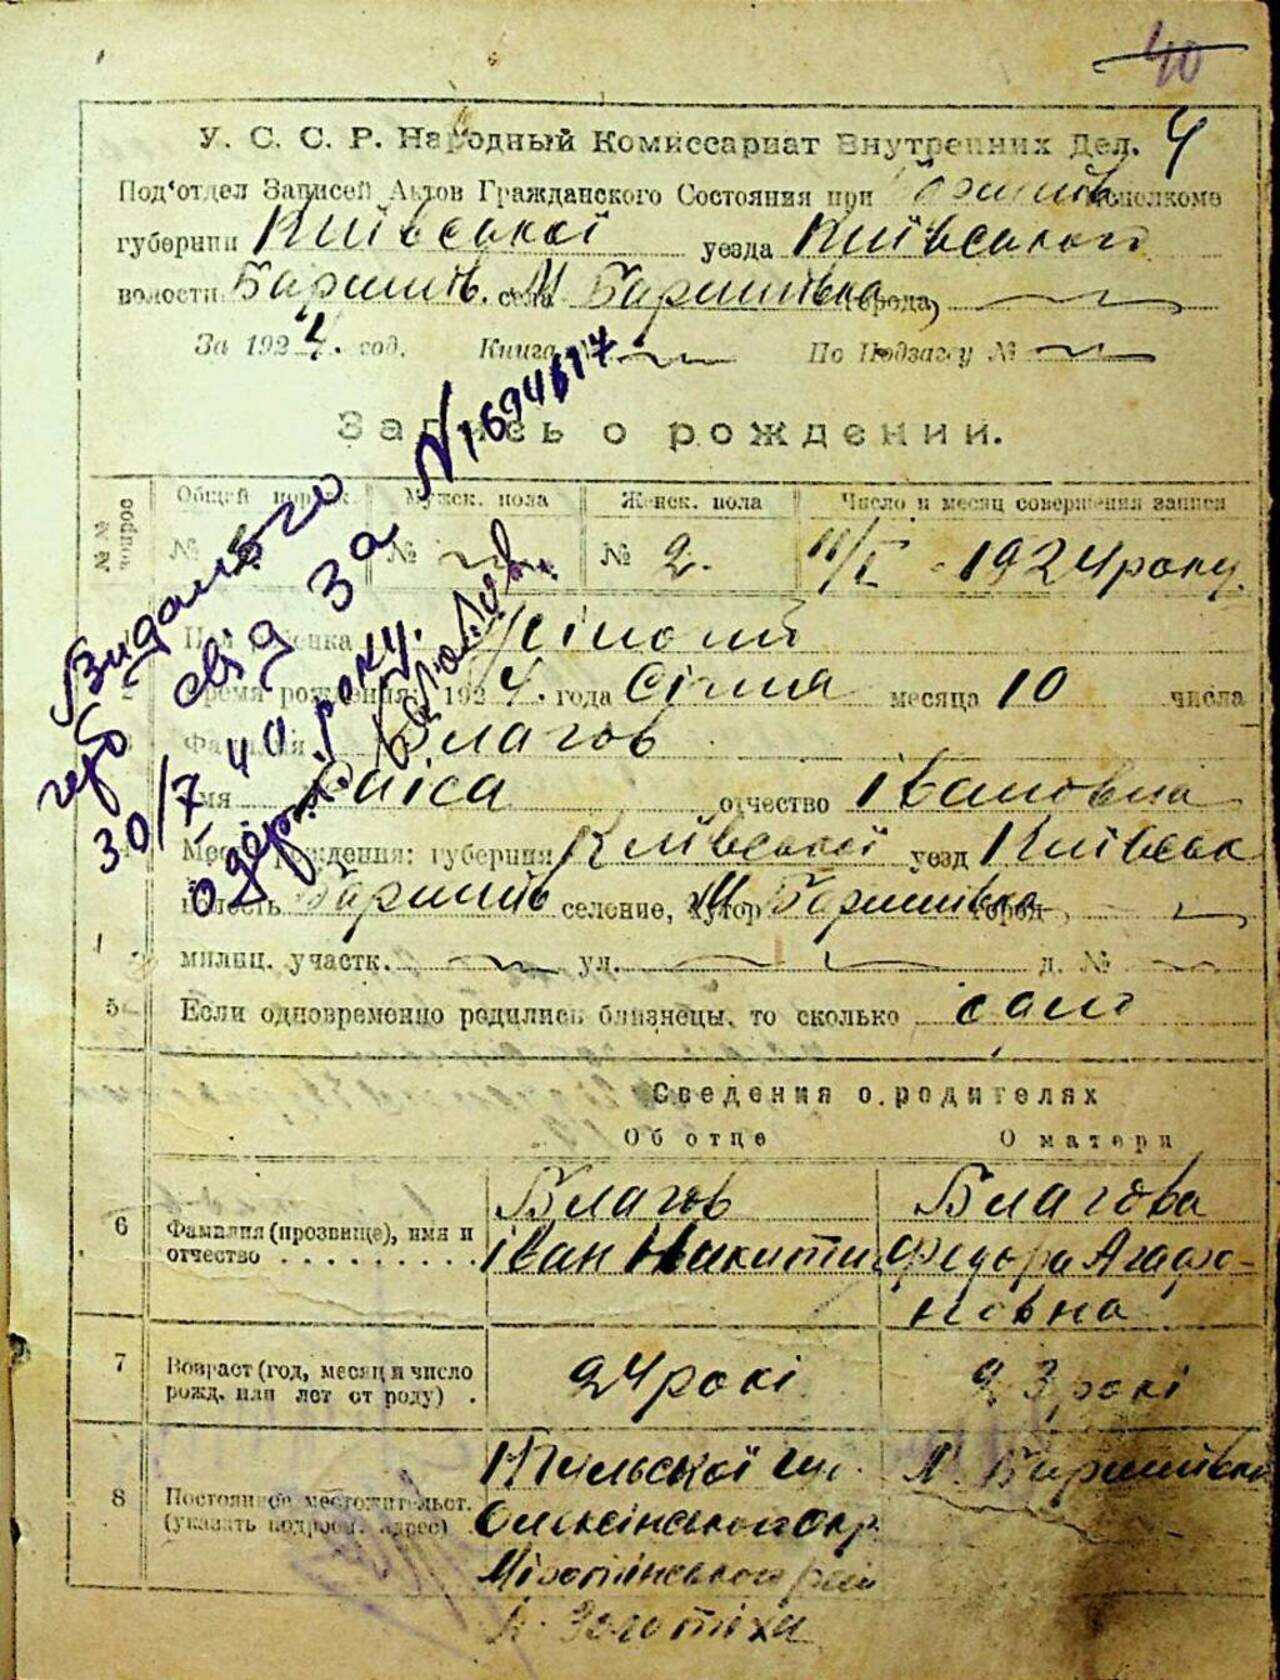 40
4
У. С. С. Р. Народный Комиссариат Внутренних Дел.
Под'отдел Записей Актов Гражданского Состояния при Баришів исполкоме
губернии Київської уезда Київського
волости Баришів. села М. Баришівка города,
За 1924. год. Книга По Подзагсу №
Запись о рождении.
№№ вопрос
Общей поряд. Мужск. пола Женск. пола Число и месяц совершения записи
№ № № 2. 11/I 1924 року.
Имя ребенка
2 Время рождения: 1924. года Січня месяца 10 числа
Фамилия Благов
Имя Раіса отчество Івановна
Место рождения: губерния Київської уезд Київськ
волость Баришів селение, хутор М. Баришівка город
милиц. участк. ул. д. №
5 Если одновременно родились близнецы, то сколько само
Сведения о родителях
Об отце О матери
6 Фамилия (прозвище), имя и отчество Благов Іван Никитин Благова Федора Агафоновна
7 Возраст (год, месяц и число рожд. или лет от роду) 24 рокі 23 рокі
8 Постоянное местожительст. (указать подробн. адрес) М. Баришівка
Золотіха
Видано
свід за N 1694617
30/7 40 року.